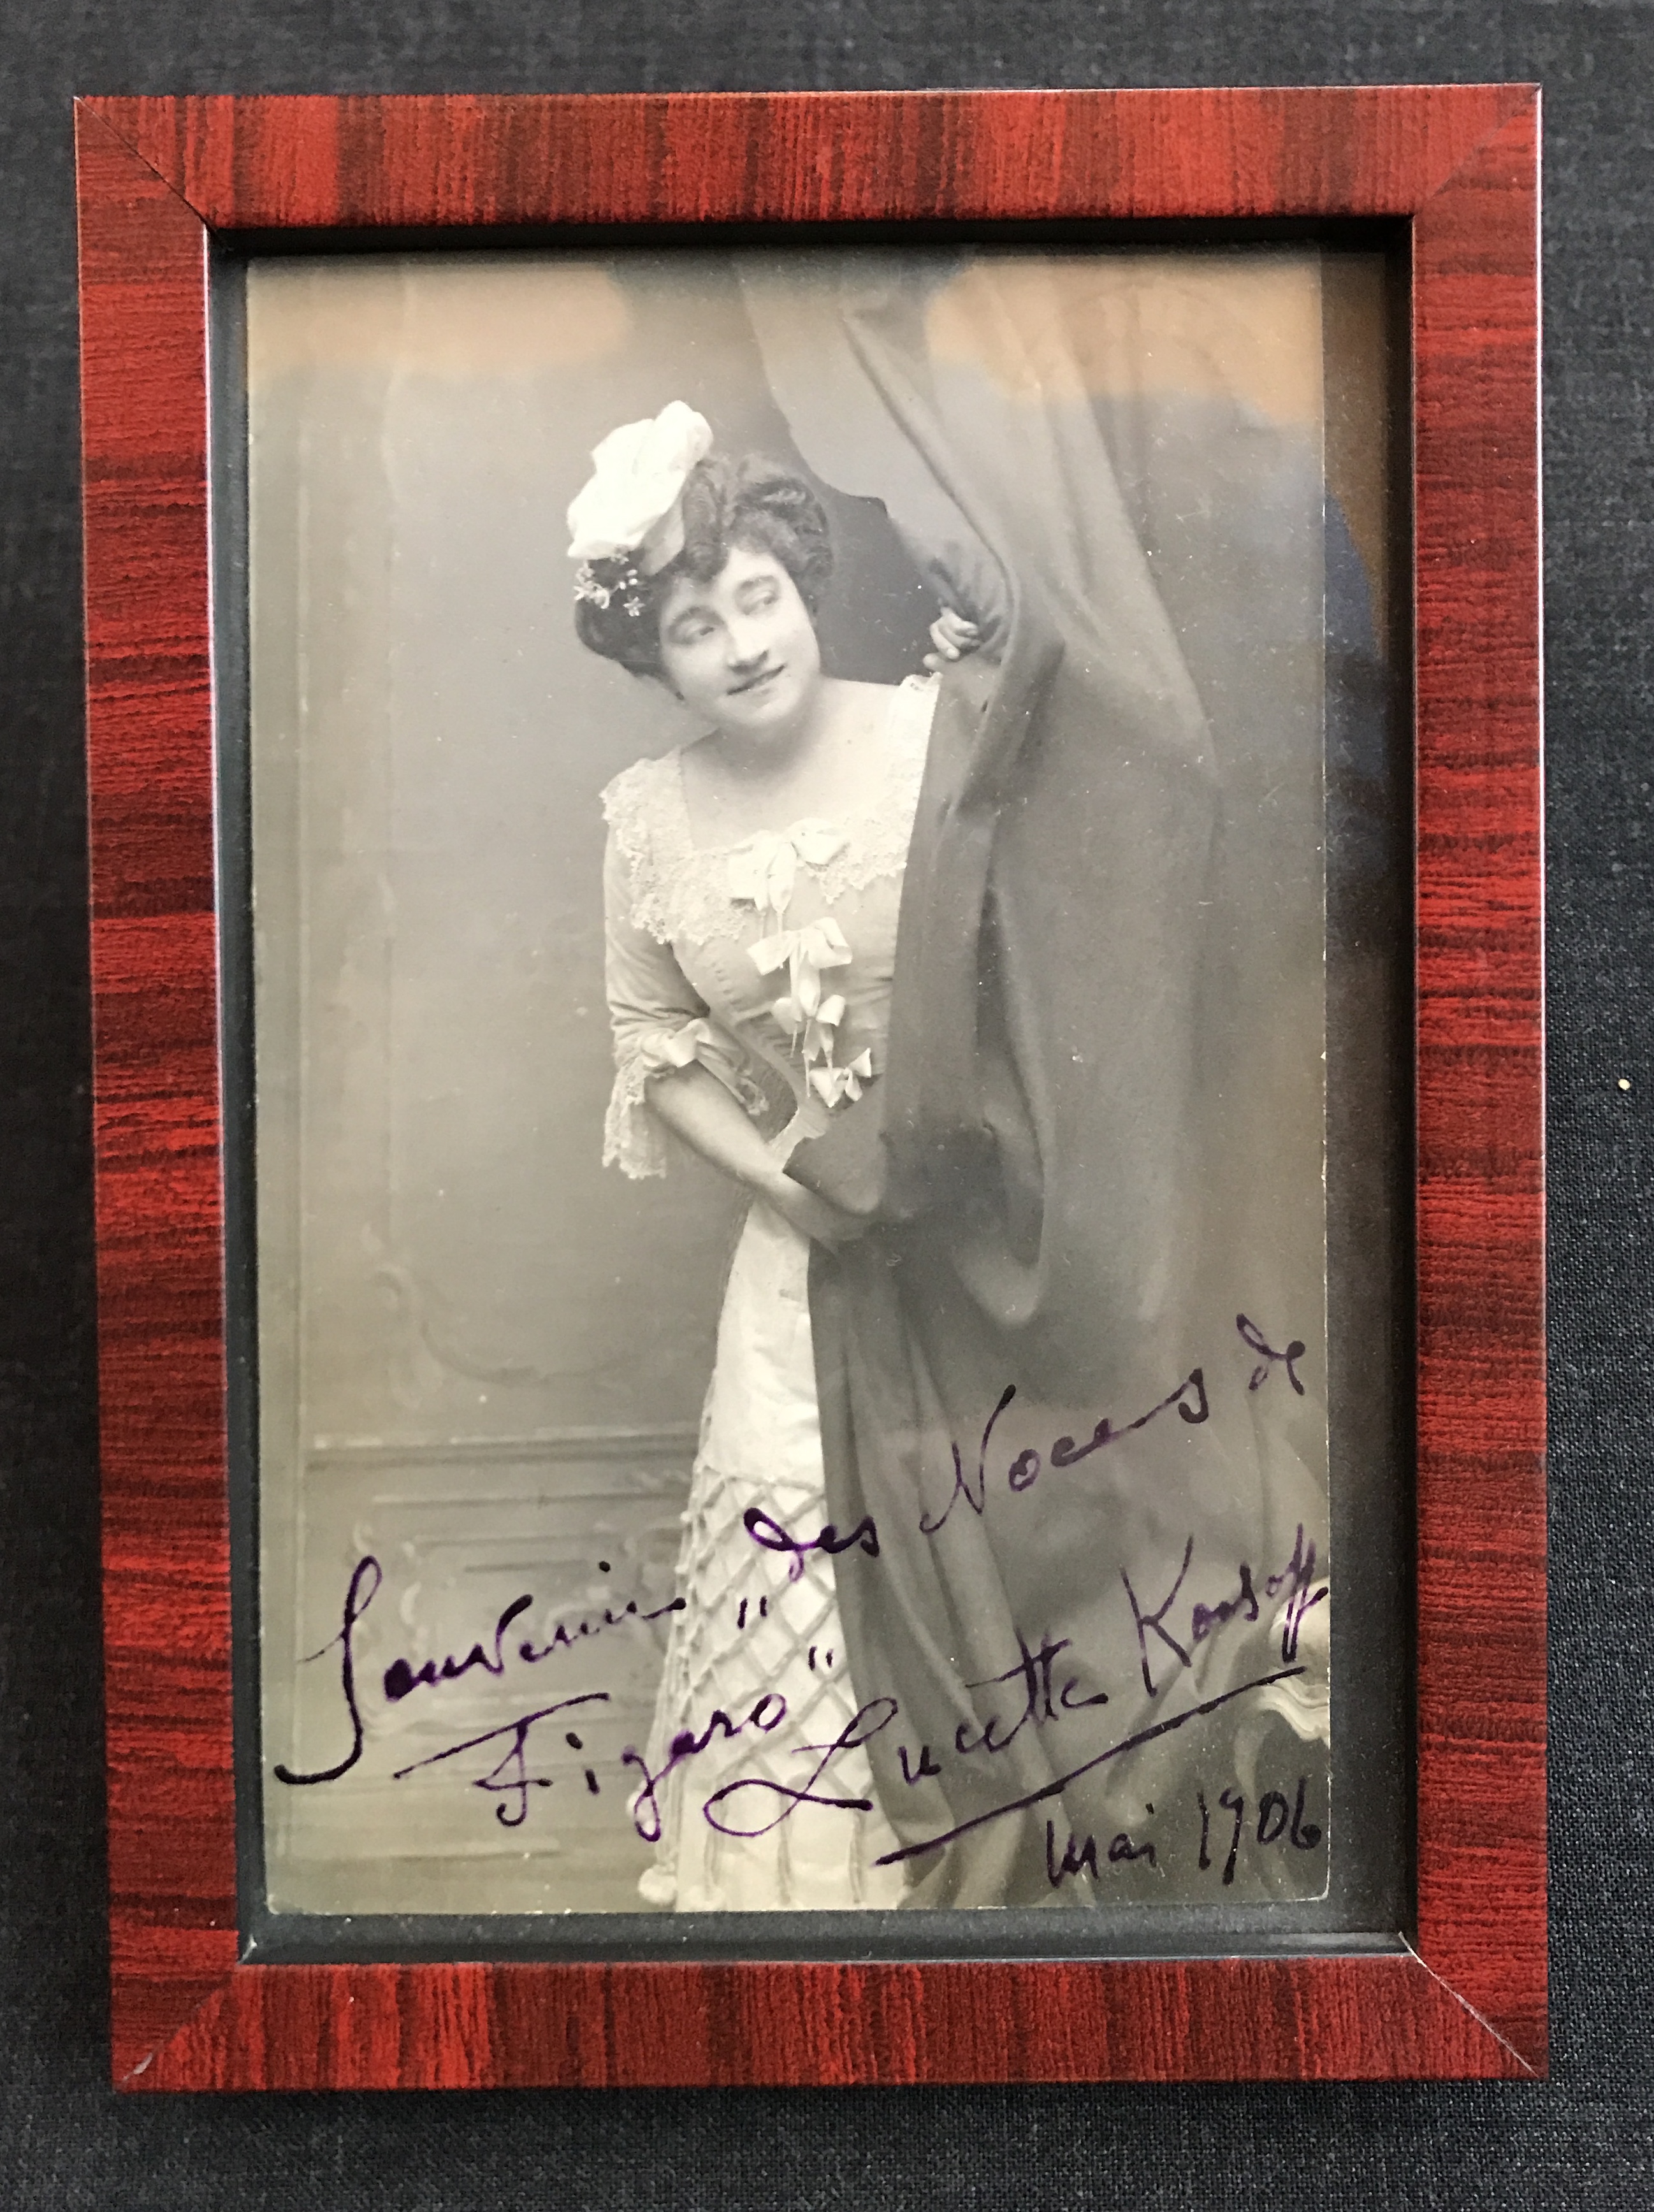 Souvenir "des Noces de
Figaro" Lucette Korsoff
Mai 1906